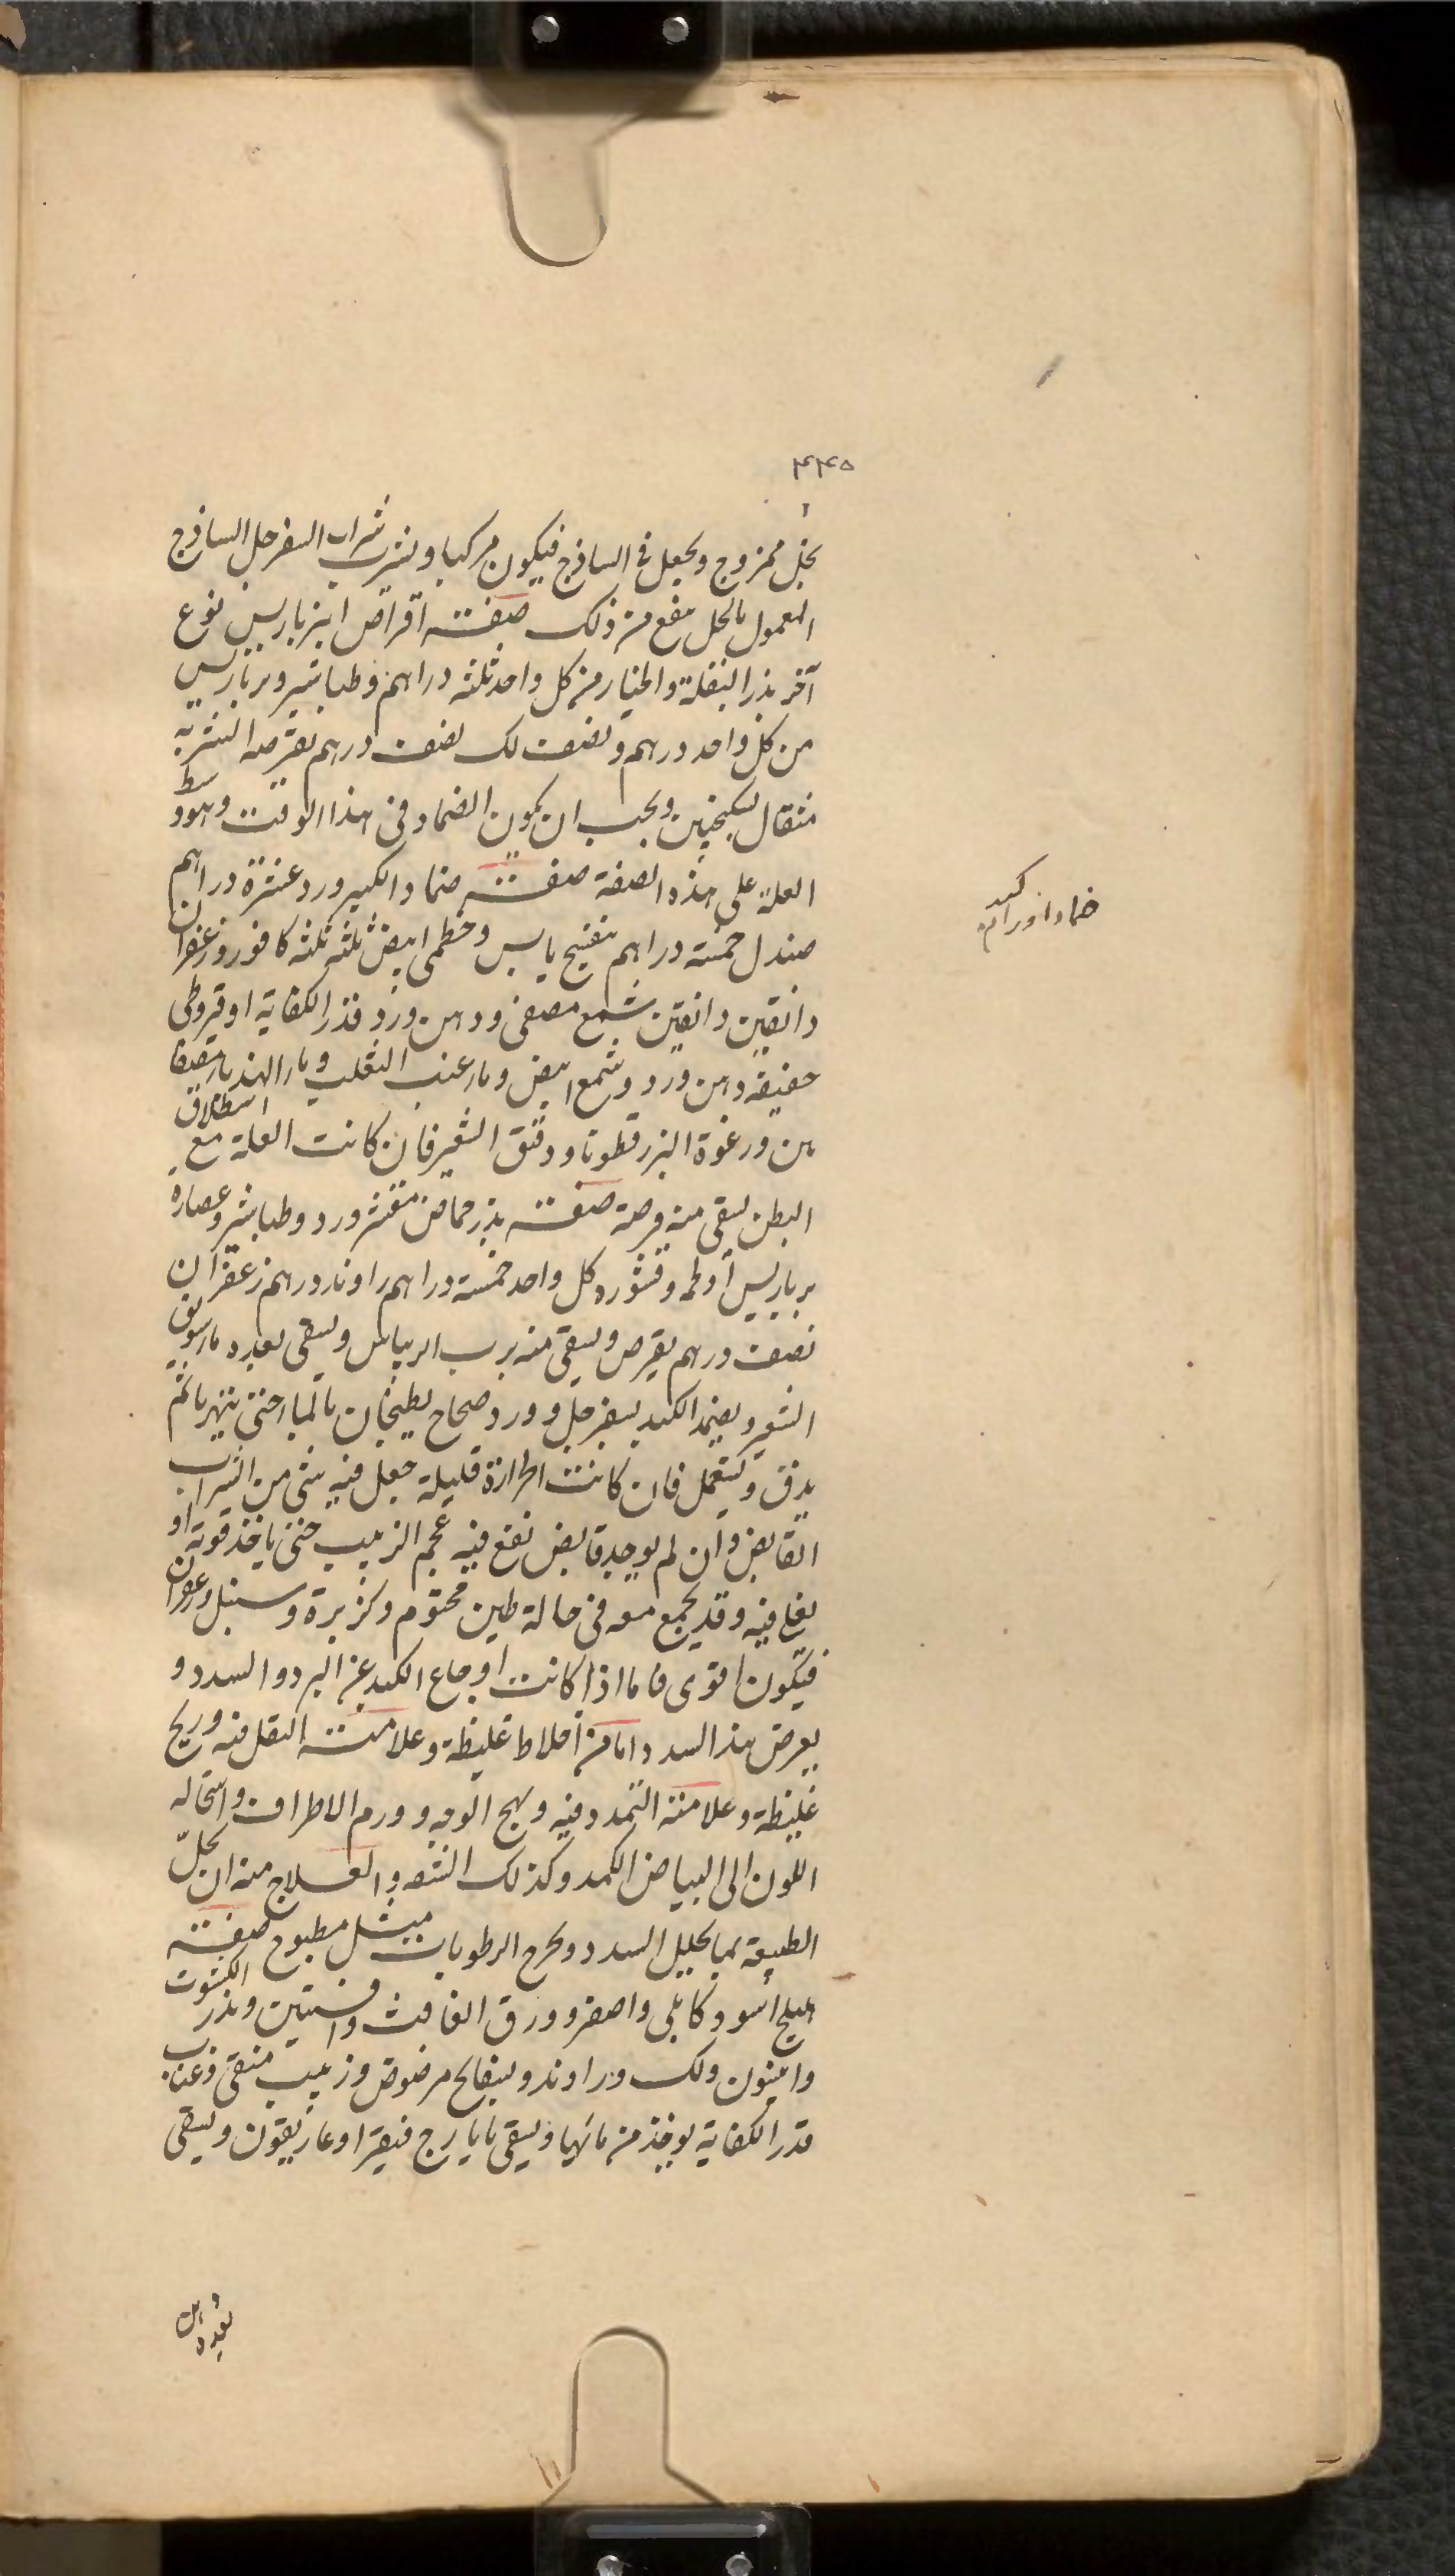 ٤٤٥
بخل ممزوج ويجعل في الساذج فيكون مركبا ويشرب شراب السفرجل الساذج
المعمول بالخل ينفع من ذلك صفته اقراص انبرباريس نوع
آخر بذر البقلة والخيار من كل واحد ثلثه دراهم وطباشير وبرباريس
من كل واحد درهم ونصف لك نصف درهم يقرصه الشربه
مثقال بسكنجبين ويجب ان يكون الضماد في هذا الوقت وهو وسط
العلة على هذه الصفة صفته ضماد الكبد ورد عشرة دراهم
صندل خمسه دراهم بنفسج يابس وخطمى ابيض ثلثه ثلثه كافور وزعفران
دانقين دانقين شمع مصفى ودهن ورد قدر الكفاية او قيروطى
خفيفة دهن ورد وشمع ابيض وماء عنب الثعلب وماء الهندبا
من ورغوة البزر قطونا ودقيق الشعير فان كانت العلة مع استطلاق
البطن يسقى منه قرصة صفته بذر حماض مقشر ورد وطباشير وعصارة
برباريس او لحمه وقشوره كل واحد خمسة دراهم راوند درهم زعفران
نصف درهم يقرص ويسقى منه برب الريباس ويسقى بعده ماء سويق
الشعير ويضمد الكبد بسفرجل وورد صحاح يطبخان بالماء حتى يتهريا ثم
يدق ويستعمل فان كانت الحرارة قليلة جعل فيه شى من الشراب
القابض وان لم يوجد قابض نقع فيه عجم الزبيب حتى ياخذ قوته او
يغلى فيه وقد يجمع معه في حالة طين مختوم وكزبرة وسنبل وزعفران
فيكون اقوى فاما اذا كانت اوجاع الكبد عن البرد والسدد و
يعرض هذا السدد اما من اخلاط غليظة وعلامته الثقل فيه وريح
غليظة وعلامته التمدد فيه وتهيج الوجه وورم الاطراف واستحاله
اللون الى البياض الكمد وكذلك الشفه والعلاج منه ان تحلّ
الطبيعة بما يحلل السدد ويخرج الرطوبات مثل مطبوخ صفته
هليلج اسود كابلى واصفر وورق الغافث وافسنتين وبذر الكشوث
وانيسون ولك وراوند وبسفايج مرضوض وزبيب منقى وعناب
قدر الكفاية يوخذ من مائها ويسقى بايارج فيقرا وغاريقون ويسقى
ضماد اورام كبد
بعده